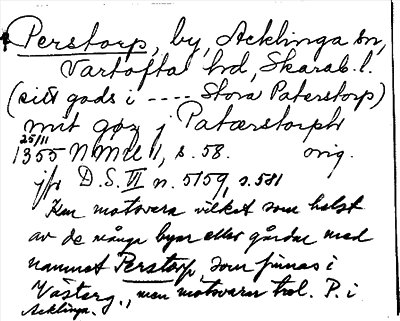 Perstorp, by, Acklinga sn,
Vartofta hd, Skarab. l.
(sitt gods i ---- Stora Paterstorp)
mit goz j Patærstorph
25/11
1355 NMU 1, s. 58. orig.
jfr D.S. VI n. 5159, s. 581
Kan motsvara vilket som helst
av de många byar eller gårdar med
namnet Perstorp, som finnas i
Västerg., men motsvarar trol. P. i
Acklinga.